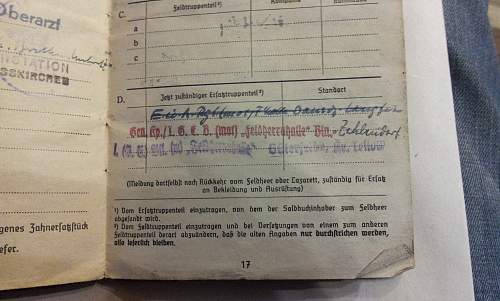 Oberarzt
NSTATION
genes Zahnersatzstück
efer.
C.
Feldtruppenteil²)
Kompanie
a
b
c
D.
Jetzt zuständiger Ersatztruppenteil²)
Standort
Danzig-Langfuhr
Gen. Kp./I. G. E. B. (mot) „Feldherrnhalle" Bln.- Zehlendorf
Güterfelde, Kr. Teltow
(Meldung dortselbst nach Rückkehr vom Feldheer oder Lazarett, zuständig für Ersatz
an Bekleidung und Ausrüstung)
¹) Vom Ersatztruppenteil einzutragen, von dem der Soldbuchinhaber zum Feldheer
abgesandt wird.
²) Vom Feldtruppenteil einzutragen und bei Versetzungen von einem zum anderen
Feldtruppenteil derart abzuändern, daß die alten Angaben nur durchstrichen werden,
also leserlich bleiben.
17